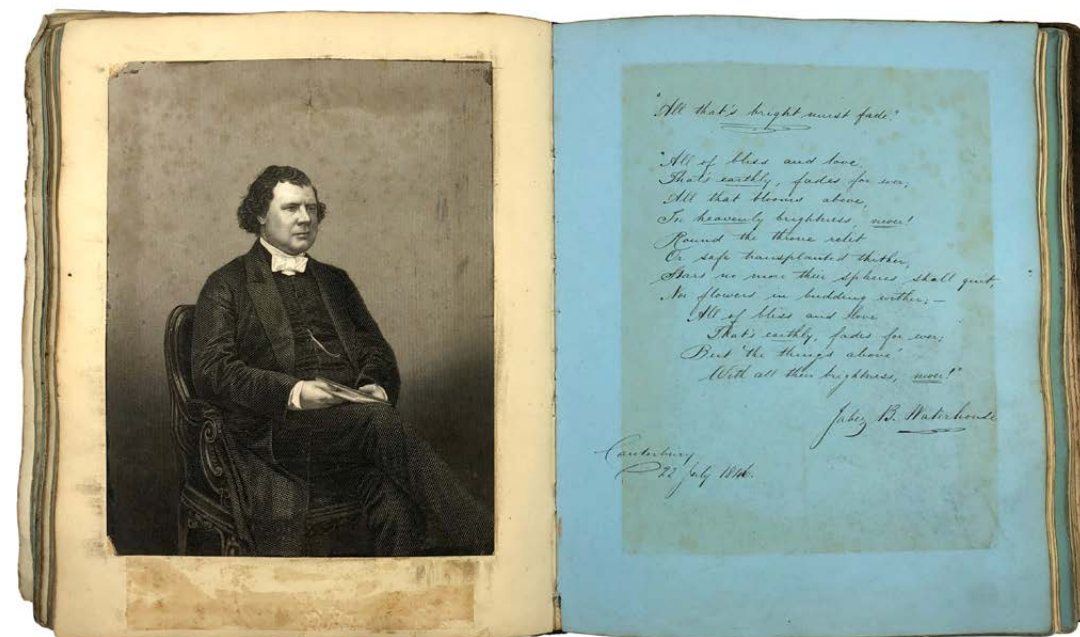 "All that's bright must fade"
"All of bliss and love,
That's earthly, fades for ever,
All that blooms above,
In heavenly brightness, never!
Round the throne relit
Or safe transplanted thither,
Stars no more their spheres shall quit,
Nor flowers in budding wither; —
All of bliss and love
That's earthly, fades for ever;
But 'the things above'
With all their brightness, never!"
Jabez B. Waterhouse
Canterbury
22 July 1846.